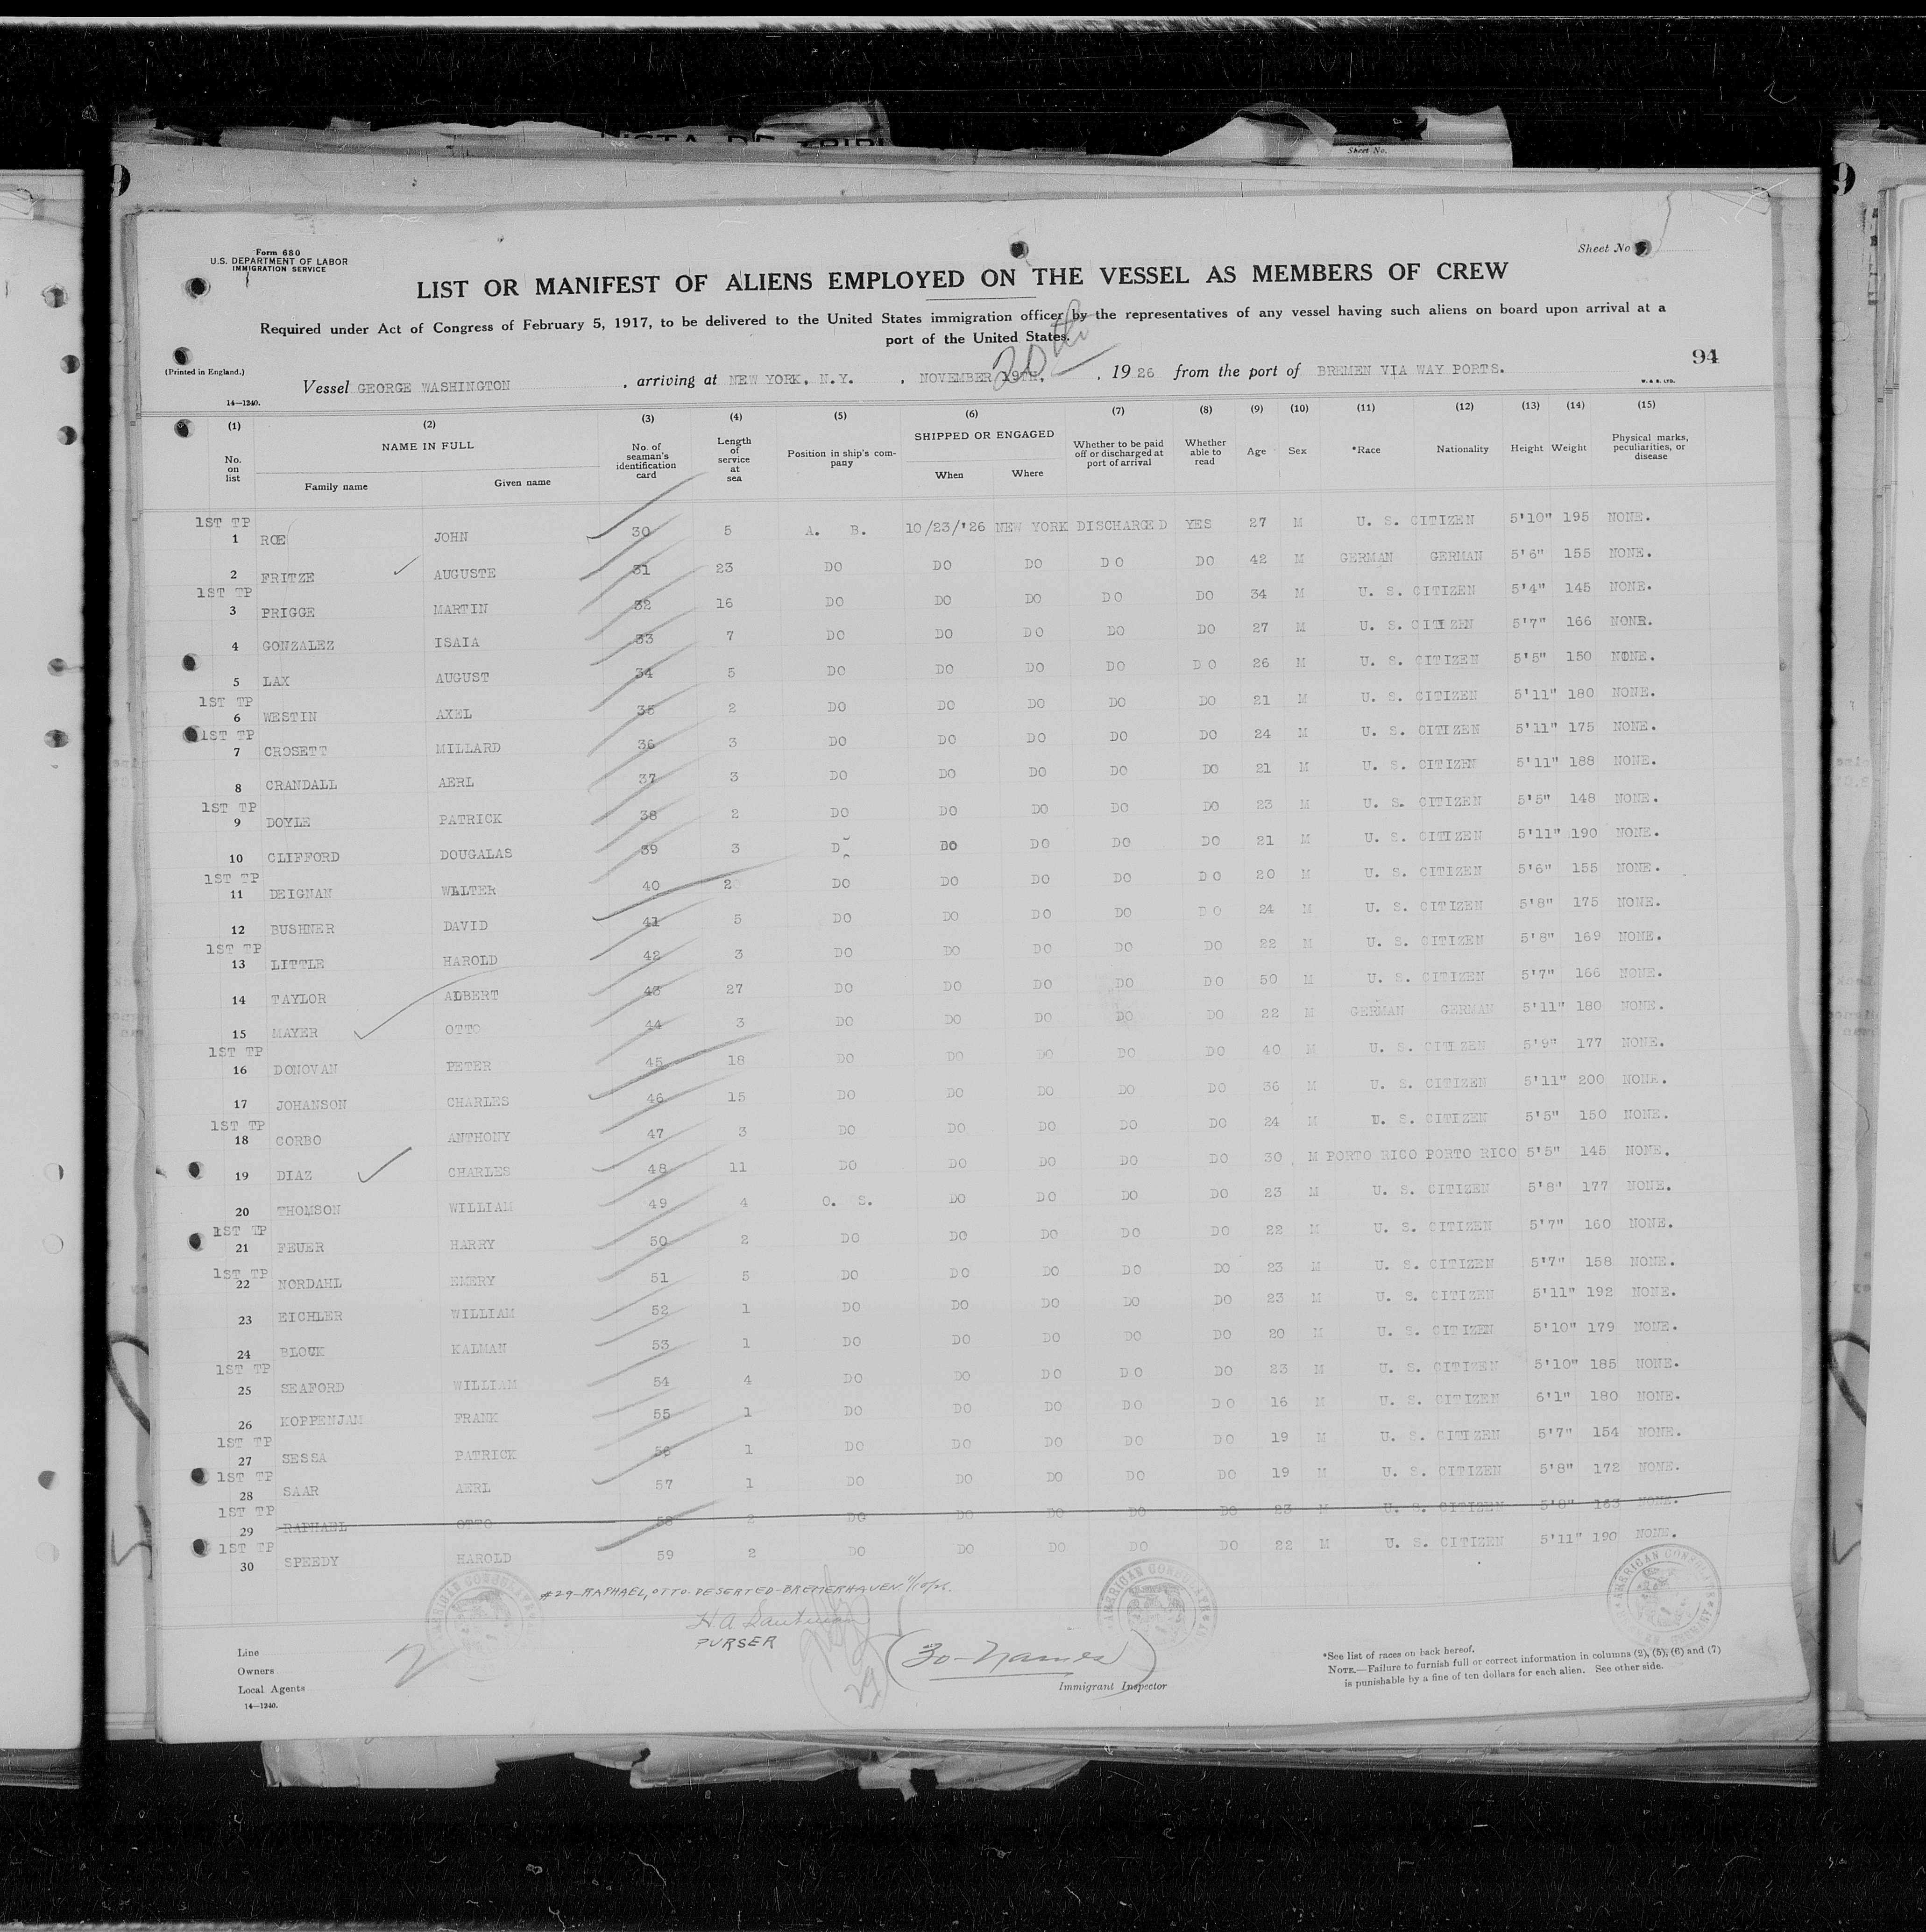 Sheet No.
Form 680
U.S. DEPARTMENT OF LABOR
IMMIGRATION SERVICE
Sheet No
LIST OR MANIFEST OF ALIENS EMPLOYED ON THE VESSEL AS MEMBERS OF CREW
Required under Act of Congress of February 5, 1917, to be delivered to the United States immigration officer by the representatives of any vessel having such aliens on board upon arrival at a
port of the United States.
94
(Printed in England.)
20th
Vessel GEORGE WASHINGTON , arriving at NEW YORK, N.Y. , NOVEMBER 19TH, , 1926 from the port of BREMEN VIA WAY PORTS.
14—1240.
W. & S. LTD.
(1) (2) (3) (4) (5) (6) (7) (8) (9) (10) (11) (12) (13) (14) (15)
No. on list NAME IN FULL Family name Given name No. of seaman's identification card Length of service at sea Position in ship's company SHIPPED OR ENGAGED When Where Whether to be paid off or discharged at port of arrival Whether able to read Age Sex *Race Nationality Height Weight Physical marks, peculiarities, or disease
1ST TP
1 ROE JOHN 30 5 A. B. 10/23/'26 NEW YORK DISCHARGED YES 27 M U. S. CITIZEN 5'10" 195 NONE.
2 FRITZE AUGUSTE 31 23 DO DO DO DO DO 42 M GERMAN GERMAN 5'6" 155 NONE.
1ST TP
3 PRIGGE MARTIN 32 16 DO DO DO DO DO 34 M U. S. CITIZEN 5'4" 145 NONE.
4 GONZALEZ ISAIA 33 7 DO DO DO DO DO 27 M U. S. CITIZEN 5'7" 166 NONR.
5 LAX AUGUST 34 5 DO DO DO DO DO 26 M U. S. CITIZEN 5'5" 150 NONE.
1ST TP
6 WESTIN AXEL 35 2 DO DO DO DO DO 21 M U. S. CITIZEN 5'11" 180 NONE.
1ST TP
7 CROSETT MILLARD 36 3 DO DO DO DO DO 24 M U. S. CITIZEN 5'11" 175 NONE.
8 CRANDALL AERL 37 3 DO DO DO DO DO 21 M U. S. CITIZEN 5'11" 188 NONE.
1ST TP
9 DOYLE PATRICK 38 2 DO DO DO DO DO 23 M U. S. CITIZEN 5'5" 148 NONE.
10 CLIFFORD DOUGALAS 39 3 DO DO DO DO DO 21 M U. S. CITIZEN 5'11" 190 NONE.
1ST TP
11 DEIGNAN WALTER 40 2 DO DO DO DO DO 20 M U. S. CITIZEN 5'6" 155 NONE.
12 BUSHNER DAVID 41 5 DO DO DO DO DO 24 M U. S. CITIZEN 5'8" 175 NONE.
1ST TP
13 LITTLE HAROLD 42 3 DO DO DO DO DO 22 M U. S. CITIZEN 5'8" 169 NONE.
14 TAYLOR ALBERT 43 27 DO DO DO DO DO 50 M U. S. CITIZEN 5'7" 166 NONE.
15 MAYER OTTO 44 3 DO DO DO DO DO 22 M GERMAN GERMAN 5'11" 180 NONE.
1ST TP
16 DONOVAN PETER 45 18 DO DO DO DO DO 40 M U. S. CITIZEN 5'9" 177 NONE.
17 JOHANSON CHARLES 46 15 DO DO DO DO DO 36 M U. S. CITIZEN 5'11" 200 NONE.
1ST TP
18 CORBO ANTHONY 47 3 DO DO DO DO DO 24 M U. S. CITIZEN 5'5" 150 NONE.
19 DIAZ CHARLES 48 11 DO DO DO DO DO 30 M PORTO RICO PORTO RICO 5'5" 145 NONE.
20 THOMSON WILLIAM 49 4 O. S. DO DO DO DO 23 M U. S. CITIZEN 5'8" 177 NONE.
1ST TP
21 FEUER HARRY 50 2 DO DO DO DO DO 22 M U. S. CITIZEN 5'7" 160 NONE.
1ST TP
22 NORDAHL EMERY 51 5 DO DO DO DO DO 23 M U. S. CITIZEN 5'7" 158 NONE.
23 EICHLER WILLIAM 52 1 DO DO DO DO DO 23 M U. S. CITIZEN 5'11" 192 NONE.
24 BLOUK KALMAN 53 1 DO DO DO DO DO 20 M U. S. CITIZEN 5'10" 179 NONE.
1ST TP
25 SEAFORD WILLIAM 54 4 DO DO DO DO DO 23 M U. S. CITIZEN 5'10" 185 NONE.
26 KOPPENJAM FRANK 55 1 DO DO DO DO DO 16 M U. S. CITIZEN 6'1" 180 NONE.
1ST TP
27 SESSA PATRICK 56 1 DO DO DO DO DO 19 M U. S. CITIZEN 5'7" 154 NONE.
1ST TP
28 SAAR AERL 57 1 DO DO DO DO DO 19 M U. S. CITIZEN 5'8" 172 NONE.
1ST TP
29 RAPHAEL OTTO 58 2 DO DO DO DO DO 23 M U. S. CITIZEN 5'8" 163 NONE.
1ST TP
30 SPEEDY HAROLD 59 2 DO DO DO DO DO 22 M U. S. CITIZEN 5'11" 190 NONE.
#29-RAPHAEL, OTTO-DESERTED-BREMERHAVEN
AMERICAN CONSULATE
AMERICAN CONSULATE
AMERICAN CONSULATE
H. A.
PURSER
(30-Names)
Line
Owners
Local Agents
14—1240.
Immigrant Inspector
*See list of races on back hereof.
NOTE.—Failure to furnish full or correct information in columns (2), (5), (6) and (7)
is punishable by a fine of ten dollars for each alien. See other side.